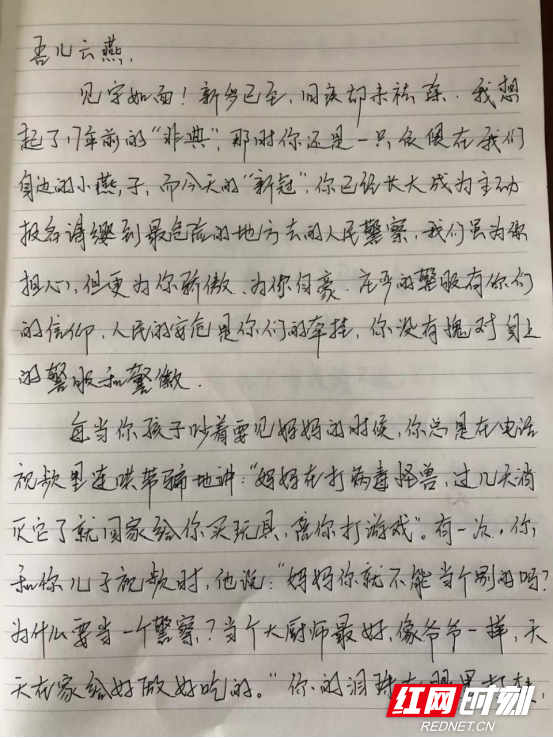 吾儿云燕,
见字如面！新岁已至,旧疾却未祛除.我想
起了17年前的“非典”,那时你还是一只依偎在我们
身边的小燕子,而今天的“新冠”,你已经长大成为主动
报名请缨到最危险的地方去的人民警察,我们虽为你
担心,但更为你骄傲、为你自豪.庄严的警服有你们
的信仰,人民的安危是你们的牵挂,你没有愧对身上
的警服和警徽.
每当你孩子吵着要见妈妈的时候,你总是在电话
视频里连哄带骗地讲:“妈妈在打病毒怪兽,过几天消
灭它了就回家给你买玩具,陪你打游戏”.有一次,你
和你儿子视频时,他说:“妈妈你就不能当个别的吗?
为什么要当一个警察,?当个大厨师最好,像爷爷一样,天
天在家给好做好吃的.”你的泪珠在眼里打转,
红网时刻
REDNET.CN